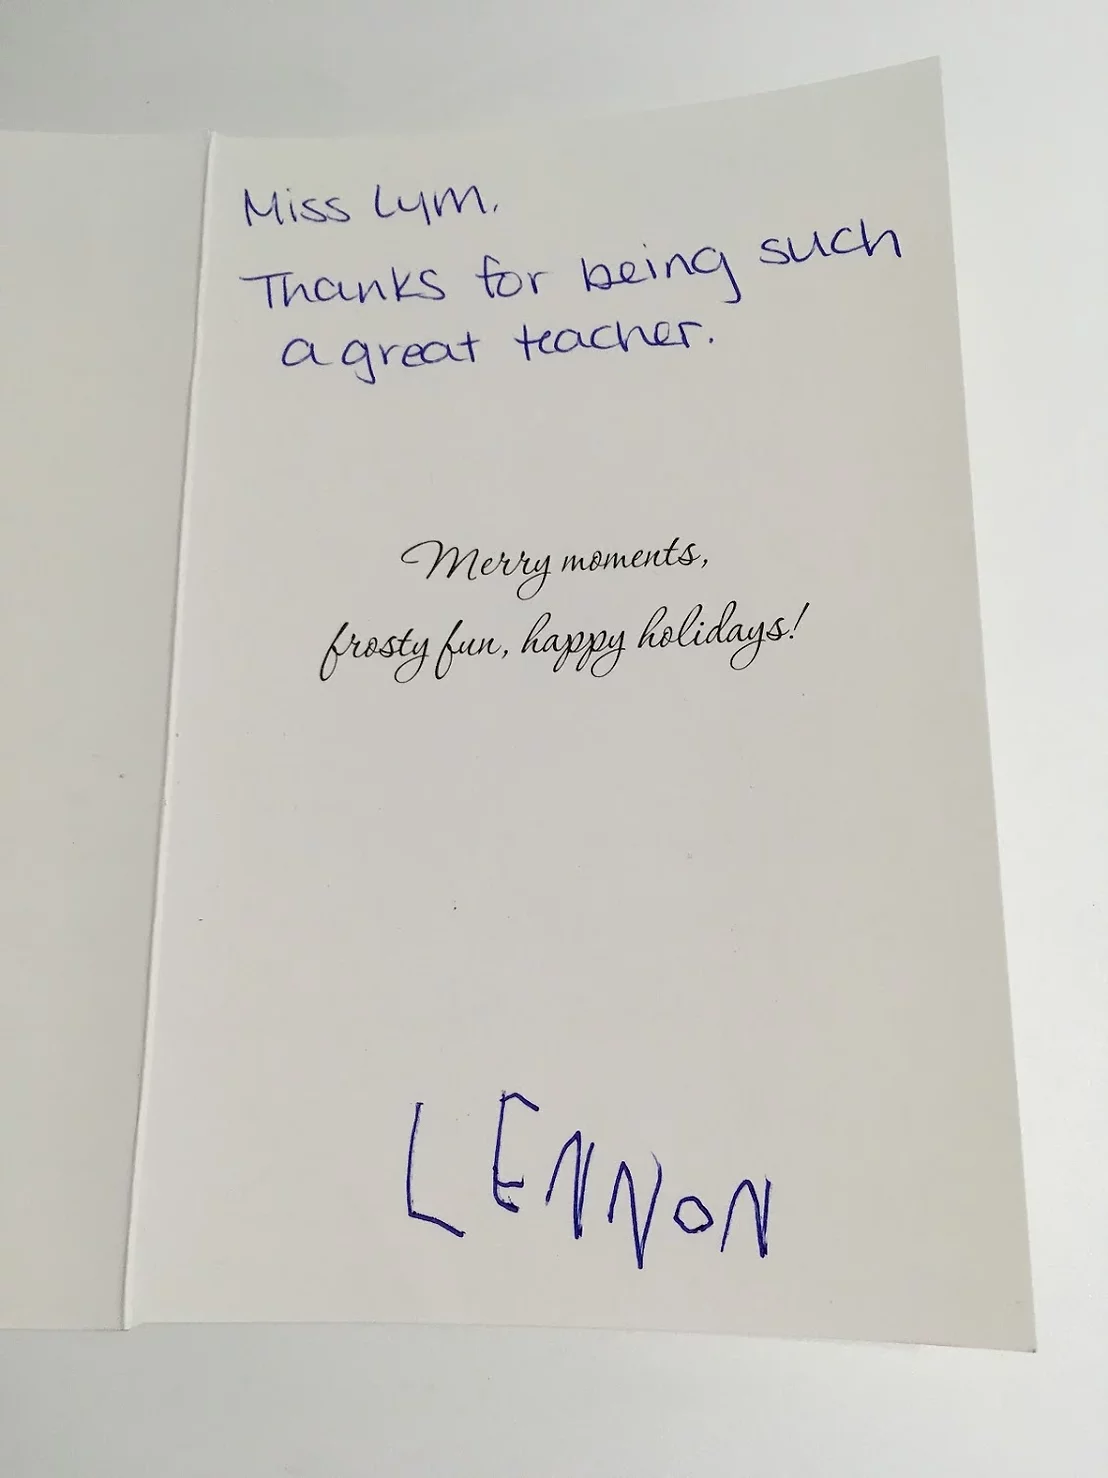 Miss Lym.
Thanks for being such
a great teacher.
Merry moments,
frosty fun, happy holidays!
LENNON